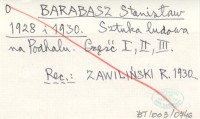 BARABASZ Stanisław
1928 i 1930. Sztuka ludowa
na Podhalu. Część I, II, III.
Rec.: ZAWILIŃSKI R. 1930.
BT/003/0946